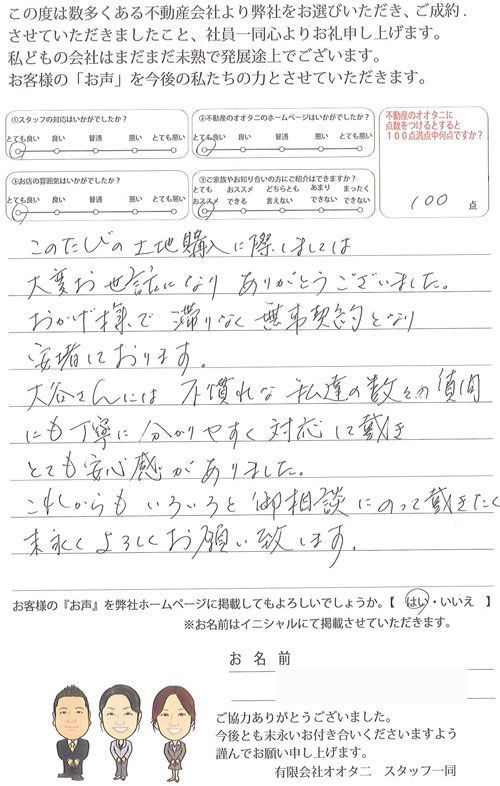 この度は数多くある不動産会社より弊社をお選びいただき、ご成約.
させていただきましたこと、社員一同心よりお礼申し上げます。
私どもの会社はまだまだ未熟で発展途上でございます。
お客様の「お声」を今後の私たちの力とさせていただきます。
①スタッフの対応はいかがでしたか?
とても良い 良い 普通 悪い とても悪い
②不動産のオオタニのホームページはいかがでしたか?
とても良い 良い 普通 悪い とても悪い
③お店の雰囲気はいかがでしたか?
とても良い 良い 普通 悪い とても悪い
③ご家族やお知り合いの方にご紹介はできますか?
とても オススメ どちらとも あまり まったく
おススメ できる 言えない できない できない
不動産のオオタニに
点数をつけるとすると
100点満点中何点ですか?
100 点
このたびの土地購入に際しましては
大変お世話になり ありがとうございました。
おかげ様で 滞りなく 無事契約となり
安堵しております。
大谷さんには 不慣れな私達の数々の質問
にも丁寧に分かりやすく対応して戴き
とても安心感がありました。
これからも いろいろと御相談にのって戴きたく
末永くよろしくお願い致します。
お客様の『お声』を弊社ホームページに掲載してもよろしいでしょうか。【 はい・いいえ 】
※お名前はイニシャルにて掲載させていただきます。
お 名 前
ご協力ありがとうございました。
今後とも末永いお付き合いくださいますよう
謹んでお願い申し上げます。
有限会社オオタニ スタッフ一同